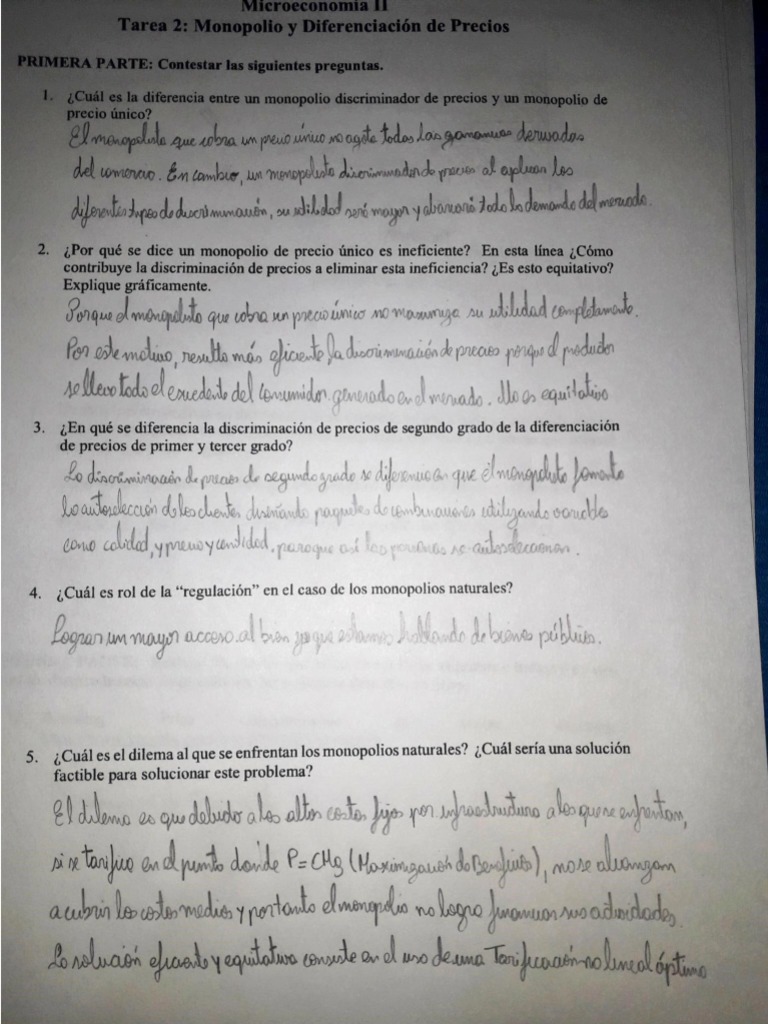 Microeconomía II
Tarea 2: Monopolio y Diferenciación de Precios
PRIMERA PARTE: Contestar las siguientes preguntas.
1. ¿Cuál es la diferencia entre un monopolio discriminador de precios y un monopolio de
precio único?
El monopolista que cobra un precio único no agota todas las ganancias derivadas
del comercio. En cambio, un monopolista discriminador de precios al aplicar los
diferentes tipos de discriminación, su utilidad será mayor y abarcará toda la demanda del mercado.
2. ¿Por qué se dice un monopolio de precio único es ineficiente? En esta línea ¿Cómo
contribuye la discriminación de precios a eliminar esta ineficiencia? ¿Es esto equitativo?
Explique gráficamente.
Porque el monopolista que cobra un precio único no maximiza su utilidad completamente.
Por este motivo, resulta más eficiente la discriminación de precios porque el productor
se lleva todo el excedente del consumidor generado en el mercado. No es equitativo
3. ¿En qué se diferencia la discriminación de precios de segundo grado de la diferenciación
de precios de primer y tercer grado?
La discriminación de precios de segundo grado se diferencia en que el monopolista fomenta
la autoselección de los clientes diseñando paquetes de combinaciones utilizando variables
como calidad, y precio y cantidad, para que así las personas se autoseleccionen.
4. ¿Cuál es rol de la “regulación” en el caso de los monopolios naturales?
Lograr un mayor acceso al bien ya que estamos hablando de bienes públicos.
5. ¿Cuál es el dilema al que se enfrentan los monopolios naturales? ¿Cuál sería una solución
factible para solucionar este problema?
El dilema es que debido a los altos costos fijos por infraestructura a los que se enfrentan,
si se tarifica en el punto donde P=CMg (Maximización de Beneficios), no se alcanzan
a cubrir los costos medios y por tanto el monopolio no logra financiar sus actividades.
La solución eficiente y equitativa consiste en el uso de una Tarificación no lineal óptima